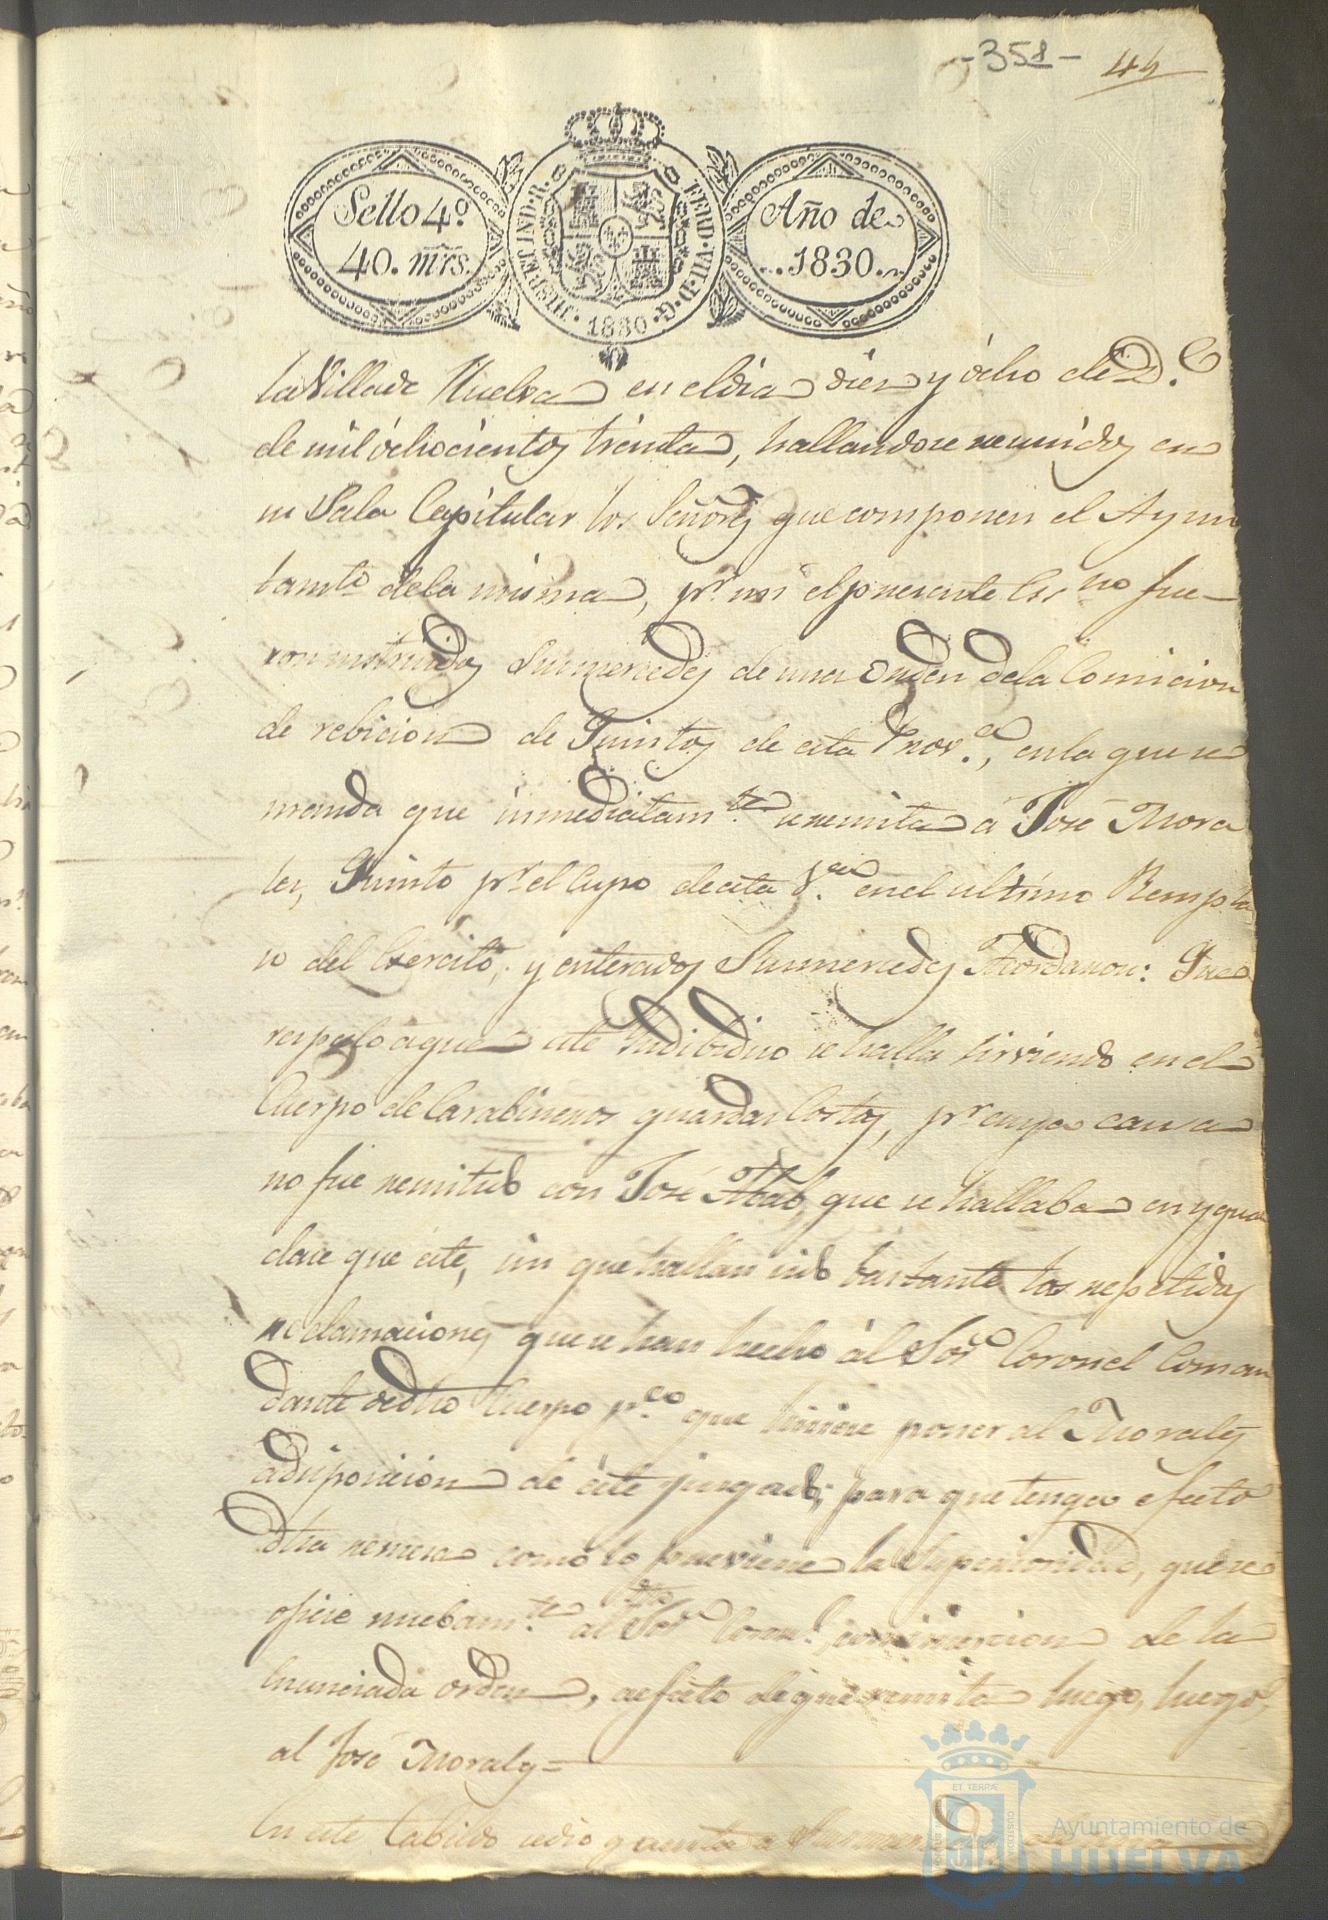 -358-
44
Sello 4º
40. mrs.
HISP. ET IND. R.
FERD. VII. D. G.
1830
Año de
1830.
la Villa de Huelva en el dia diez y ócho de D.e
de mil ochocientos treinta, hallandose reunidos en
su Sala Capitular los Señores que componen el Ayun
tamto. de la misma, pr. mi el presente Essno fue-
ron instruidos Sus mercedes de una Orden de la Comicion
de rebicion de Quintos de esta Prova., en la que se
manda que inmediatamte. se remita á José Mora
les, Quinto pr. el Cupo de esta Va. en el ultimo Rempla
so del Exercito, y enterados Sus mercedes Acordaron: Que
respecto a que este Indibiduo se halla sirviendo en el
Cuerpo de Carabineros guardas Costas, pr. cuya causa
no fue remitido con José Abad, que se hallaba en ygual
clace que éste, sin que hallan sido bastante las repetidas
reclamaciones que se han hecho ál Sor. Coronel Coman
dante de dho Cuerpo pa. que hiciese poner al Morales
a disposicion de éste juzgado; para que tenga efecto
dha remesa como lo previene la Superioridad, que se
oficie nuebamte. al dho Sor. Coronl. con insercion de la
Enunciada orden, a efecto de que remita luego, luego,
al José Morales=
En este Cabildo se dio quenta a Sus mercedes de
Ayuntamiento de
HUELVA